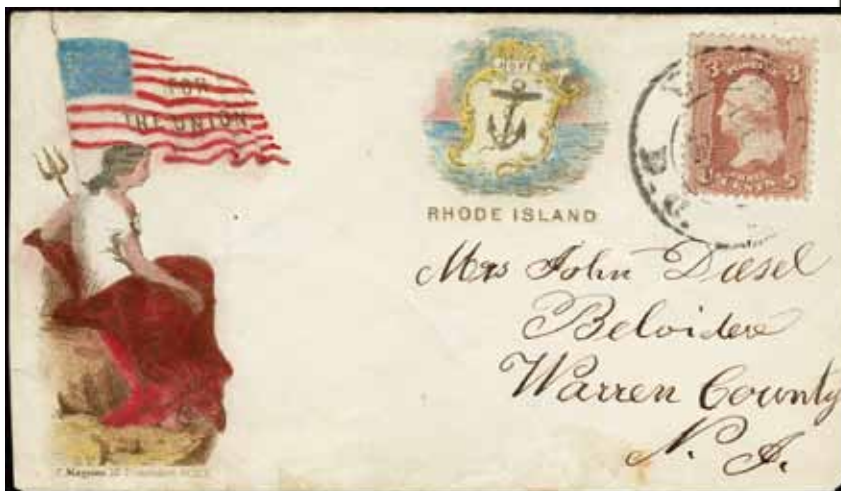 FOR
THE UNION
HOPE
RHODE ISLAND
3 3
CENTS
Mrs John Diesel
Belvidere
Warren County
N. J.
Magnus